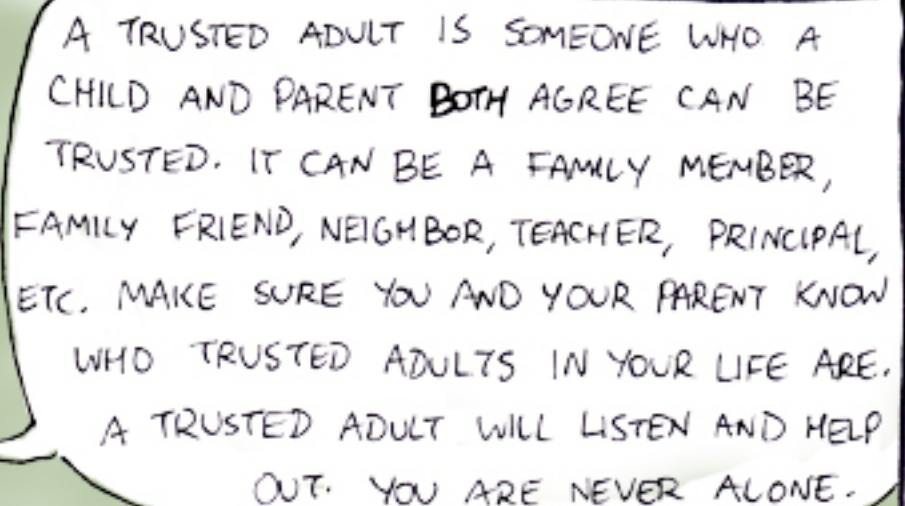 A TRUSTED ADULT IS SOMEONE WHO A
CHILD AND PARENT BOTH AGREE CAN BE
TRUSTED. IT CAN BE A FAMILY MEMBER,
FAMILY FRIEND, NEIGHBOR, TEACHER, PRINCIPAL,
ETC. MAKE SURE YOU AND YOUR PARENT KNOW
WHO TRUSTED ADULTS IN YOUR LIFE ARE.
A TRUSTED ADULT WILL LISTEN AND HELP
OUT. YOU ARE NEVER ALONE.